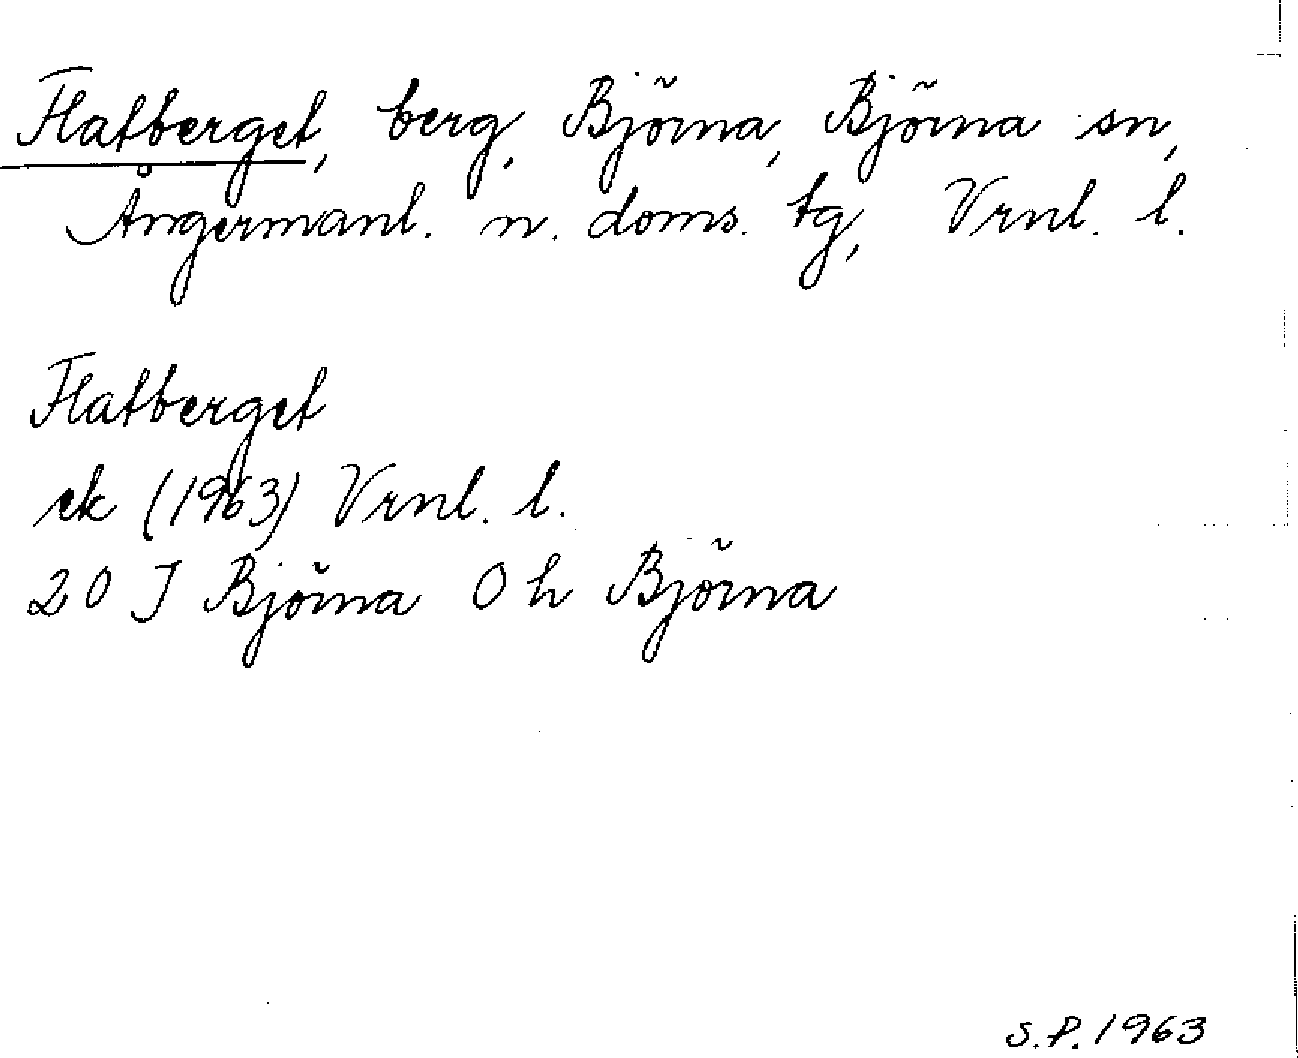 Flatberget, berg, Björna, Björna sn,
Ångermanl. n. doms. tg, Vrnl. l.
Flatberget
ek (1963) Vrnl. l.
20 J Björna 0 h Björna
S.P. 1963